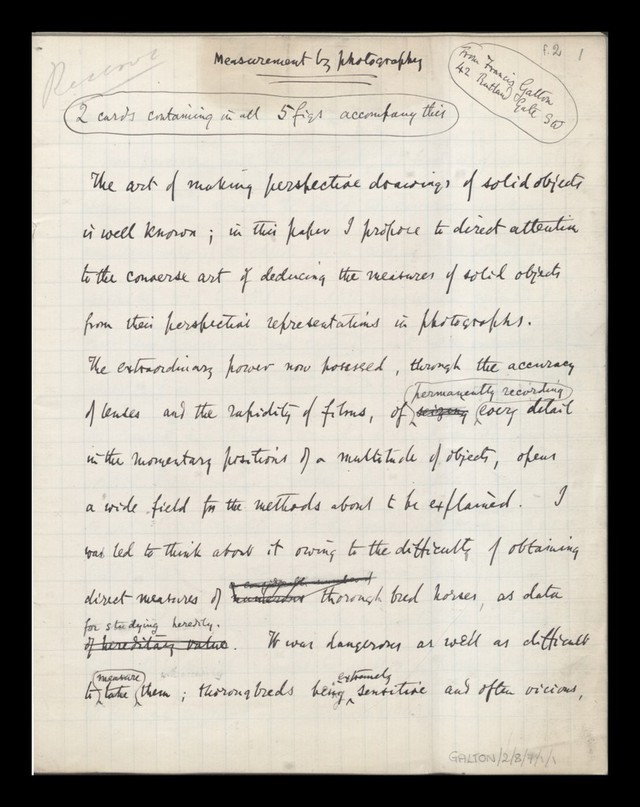 Measurement by photography
f.2 1
From Francis Galton
42 Rutland Gate SW
2 cards containing in all 5 figs accompany this
The art of making perspective drawings of solid objects
is well known ; in this paper I propose to direct attention
to the converse art of deducing the measures of solid objects
from their perspective representations in photographs.
The extraordinary power now possessed, through the accuracy
permanently recording
of lenses and the rapidity of films, of seizing every detail
in the momentary positions of a multitude of objects, opens
a wide field for the methods about to be explained. I
was led to think about it owing to the difficulty of obtaining
direct measures of numerous thorough bred horses, as data
for studying heredity.
of hereditary value. It was dangerous as well as difficult
measure extremely
to take them ; thoroughbreds being sensitive and often vicious,
GALTON/2/8/7/1/1